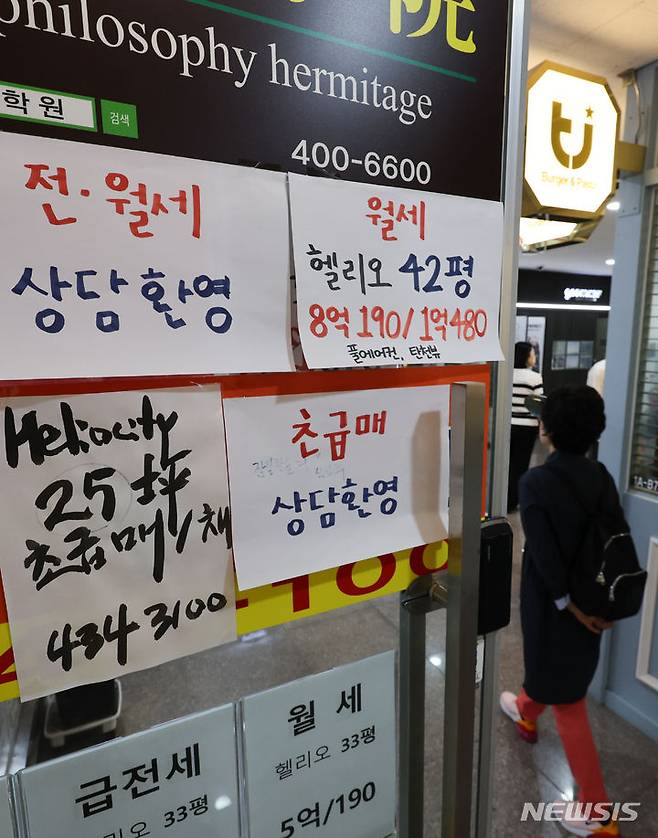 philosophy hermitage
학원
검색
400-6600
전·월세
상담환영
월세
헬리오 42평
8억 190/1억480
풀에어컨, 탄천뷰
Heliocity
25坪
초급매/채
434 3100
초급매
상담환영
급전세
헬리오 33평
월 세
헬리오 33평
5억/190
Burger & Pasta
NEWSIS